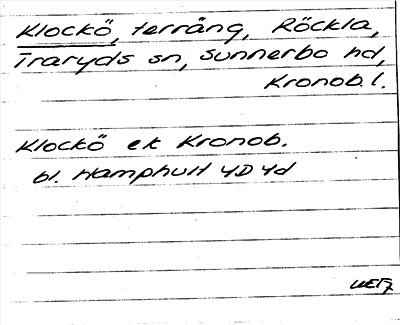 Klockö, terräng, Röckla,
Traryds sn, Sunnerbo hd,
Kronob. l.
Klockö ek Kronob.
bl. Hamphult 4D 4d